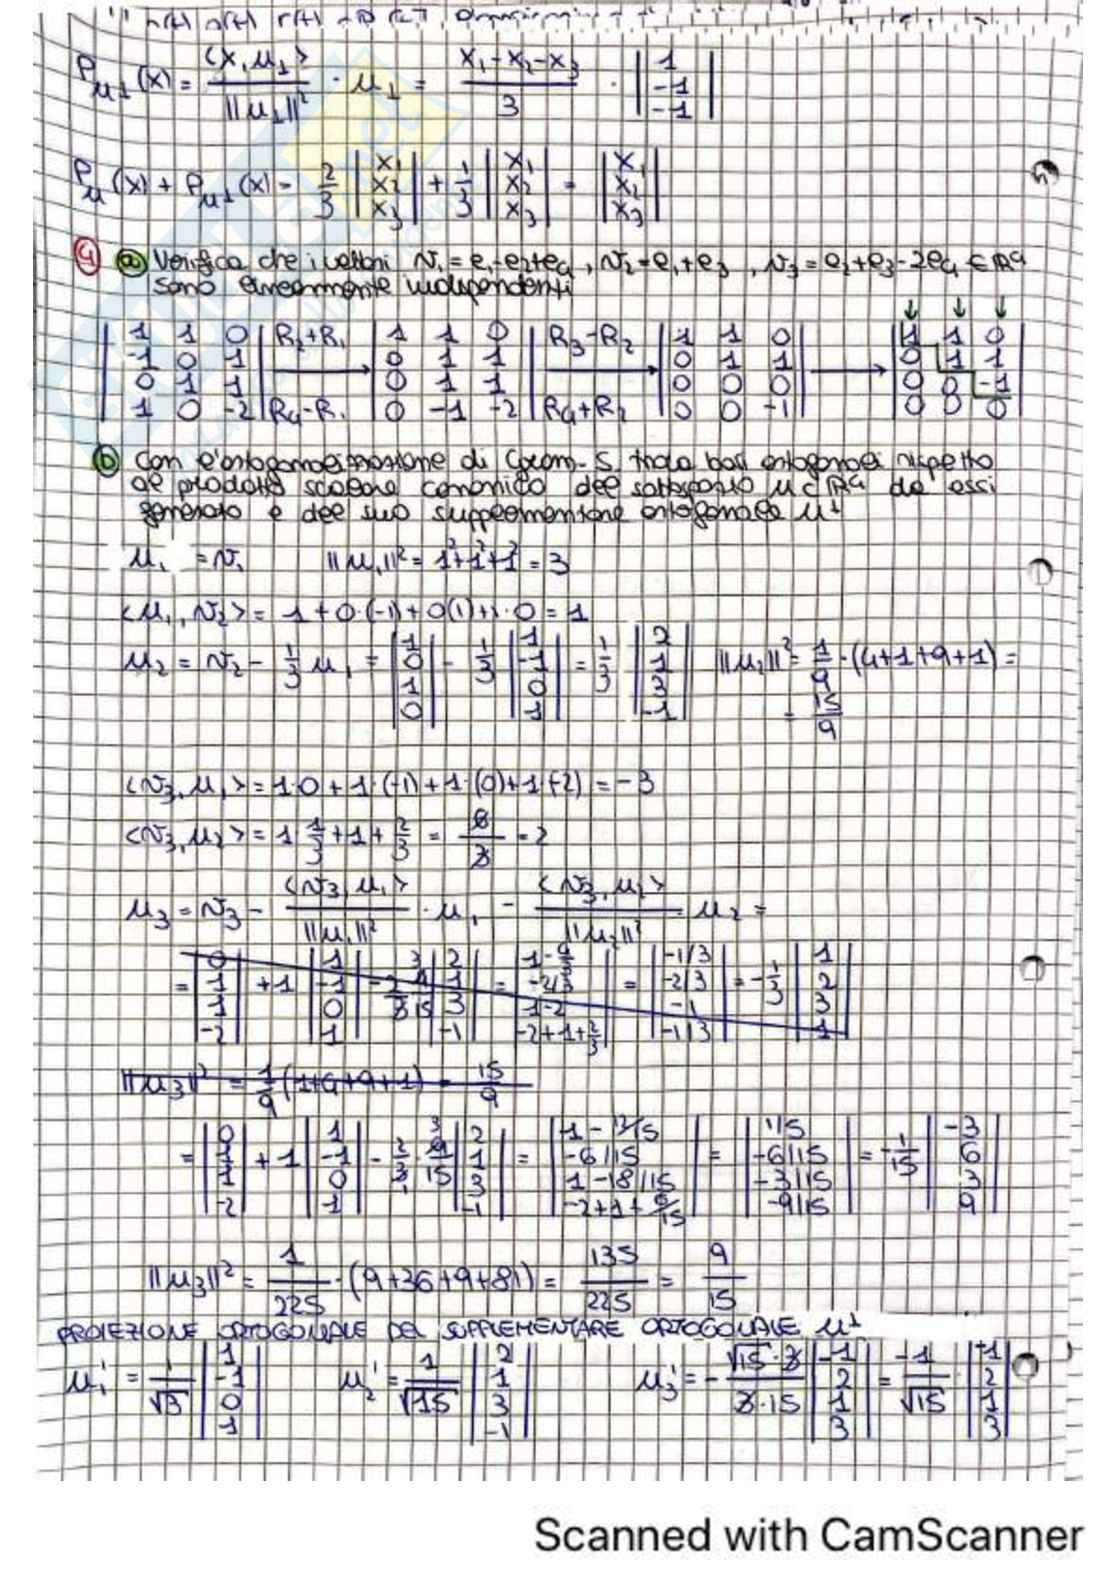 P_{u⊥}(x) = <x, u⊥> / ||u⊥||² · u⊥ = (x₁-x₂-x₃)/3 · |1 -1 -1|
P_u(x) + P_{u⊥}(x) = 2/3 |x₁ x₂ x₃| + 1/3 |x₁ x₂ x₃| = |x₁ x₂ x₃|
4 a Verifica che i vettori v₁=e₁-e₂+e₄, v₂=e₁+e₃, v₃=e₂+e₃-2e₄ ∈ R⁴
sono linearmente indipendenti
|1 1 0| R₂+R₁ |1 1 0| R₃-R₂ |1 1 0| |1 1 0|
|-1 0 1| → |0 1 1| → |0 1 1| → |0 1 1|
|0 1 1| |0 1 1| |0 0 0| |0 0 -1|
|1 0 -2| R₄-R₁ |0 -1 -2| R₄+R₂ |0 0 -1| |0 0 0|
b Con l'ortogonalizzazione di Gram-S. trova basi ortogonali rispetto
al prodotto scalare canonico del sottospazio U⊂R⁴ da essi
generato e del suo supplementare ortogonale U⊥
u₁ = v₁ ||u₁||² = 1²+1²+1² = 3
<u₁, v₂> = 1+0·(-1)+0(1)+1·0 = 1
u₂ = v₂ - 1/3 u₁ = |1 0 1 0| - 1/3 |1 -1 0 1| = 1/3 |2 1 3 -1| ||u₂||² = 1/9·(4+1+9+1) =
= 15/9
<v₃, u₁> = 1·0+1·(-1)+1·(0)+1·(-2) = -3
<v₃, u₂> = 1·1/3+1+2/3 = 6/3 = 2
u₃ = v₃ - <v₃, u₁>/||u₁||² · u₁ - <v₃, u₂>/||u₂||² u₂ =
= |0 1 1 -2| +1 |1 -1 0 1| |2 1 3 -1| = |1-4/3 -2/3 1-2 -2+1+2/3| = |-1/3 -2/3 -1 -1/3| = -1/3 |1 2 3 1|
||u₃||² = 1/9 (1+4+9+1) = 15/9
= |0 1 1 -2| +1 |1 -1 0 1| - 2/3 · 9/15 |2 1 3 -1| = |1-12/15 -6/15 1-18/15 -2+1+6/15| = |1/5 -6/15 -3/15 -9/15| = -1/15 |-3 6 3 9|
||u₃||² = 1/225 ·(9+36+9+81) = 135/225 = 9/15
PROIEZIONE ORTOGONALE DEL SUPPLEMENTARE ORTOGONALE U⊥
u₁' = 1/√3 |1 -1 0 1| u₂' = 1/√15 |2 1 3 -1| u₃' = - √15·3/3·15 |-1 2 1 3| = -1/√15 |-1 2 1 3|
Scanned with CamScanner